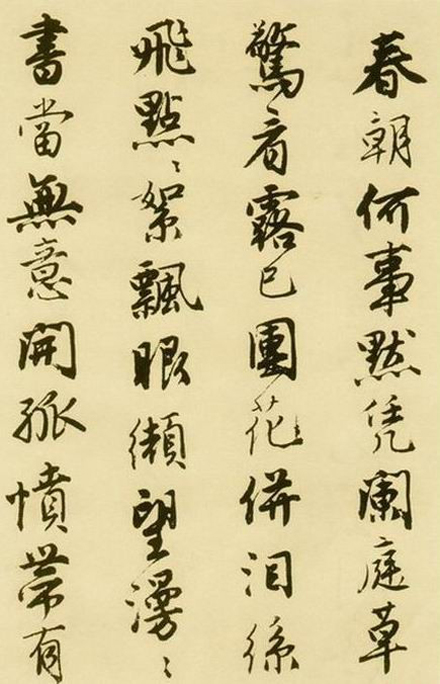 春朝何事默凭阑庭草
驚看露已團花併泪絲
飛點〻絮飄眼纈望漫〻
書當無意開孤憤帶有